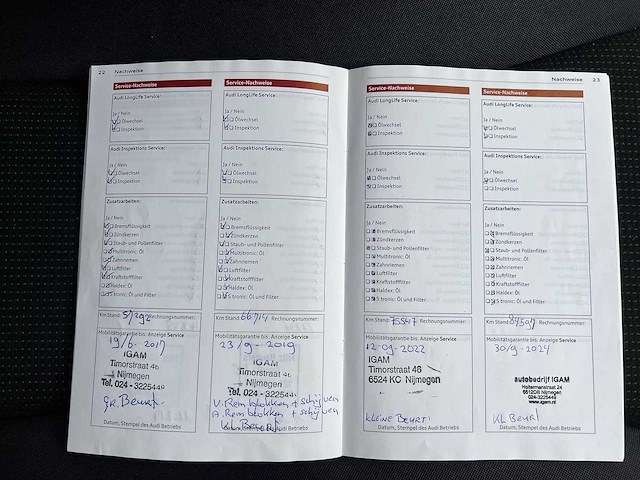 22 Nachweise
Service-Nachweise
Audi LongLife Service:
Ja / Nein
Ölwechsel
Inspektion
Audi Inspektions Service:
Ja / Nein
Ölwechsel
Inspektion
Zusatzarbeiten:
Ja / Nein
Bremsflüssigkeit
Zündkerzen
Staub- und Pollenfilter
Multitronic: Öl
Zahnriemen
Luftfilter
Kraftstofffilter
Haldex: Öl
S tronic: Öl und Filter
Km Stand: 57292 Rechnungsnummer:
Mobilitätsgarantie bis: Anzeige Service
19/6-2017
IGAM
Timorstraat 46
Nijmegen
Tel. 024 - 3225449
gr. Beurt
Datum, Stempel des Audi Betriebs
Service-Nachweise
Audi LongLife Service:
Ja / Nein
Ölwechsel
Inspektion
Audi Inspektions Service:
Ja / Nein
Ölwechsel
Inspektion
Zusatzarbeiten:
Ja / Nein
Bremsflüssigkeit
Zündkerzen
Staub- und Pollenfilter
Multitronic: Öl
Zahnriemen
Luftfilter
Kraftstofffilter
Haldex: Öl
S tronic: Öl und Filter
Km Stand: 66714 Rechnungsnummer:
Mobilitätsgarantie bis: Anzeige Service
23/9-2019
IGAM
Timorstraat 46
Nijmegen
Tel. 024 - 3225449
V. Remblokken + schijven
A. Remblokken + schijven
KL. Beurt
Datum, Stempel des Audi Betriebs
Nachweise 23
Service-Nachweise
Audi LongLife Service:
Ja / Nein
Ölwechsel
Inspektion
Audi Inspektions Service:
Ja / Nein
Ölwechsel
Inspektion
Zusatzarbeiten:
Ja / Nein
Bremsflüssigkeit
Zündkerzen
Staub- und Pollenfilter
Multitronic: Öl
Zahnriemen
Luftfilter
Kraftstofffilter
Haldex: Öl
S tronic: Öl und Filter
Km Stand: 75547 Rechnungsnummer:
Mobilitätsgarantie bis: Anzeige Service
12-09-2022
IGAM
Timorstraat 46
6524 KC Nijmegen
KLEINE BEURT
Datum, Stempel des Audi Betriebs
Service-Nachweise
Audi LongLife Service:
Ja / Nein
Ölwechsel
Inspektion
Audi Inspektions Service:
Ja / Nein
Ölwechsel
Inspektion
Zusatzarbeiten:
Ja / Nein
Bremsflüssigkeit
Zündkerzen
Staub- und Pollenfilter
Multitronic: Öl
Zahnriemen
Luftfilter
Kraftstofffilter
Haldex: Öl
S tronic: Öl und Filter
Km Stand: Rechnungsnummer:
Mobilitätsgarantie bis: Anzeige Service
30/9-2024
autobedrijf IGAM
Nijmegen
024-3225449
www.igam.nl
KL Beurt
Datum, Stempel des Audi Betriebs